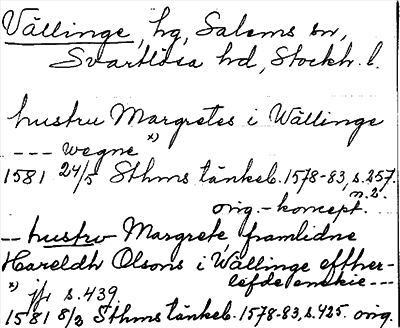 Vällinge, hg, Salems sn,
Svartlösa hd, Stockh. l.
hustru Margretes i Wällinge
--- wegne x)
1581 24/5 Sthms tänkeb. 1578-83, s. 257.
n. 2.
orig.-koncept.
-- hustrv Margrete, framlidne
Hareldh Olsons i Wällinge effther-
lefde enckie ---
x) jfr s. 439.
1581 8/3 Sthms tänkeb. 1578-83, s. 425. orig.